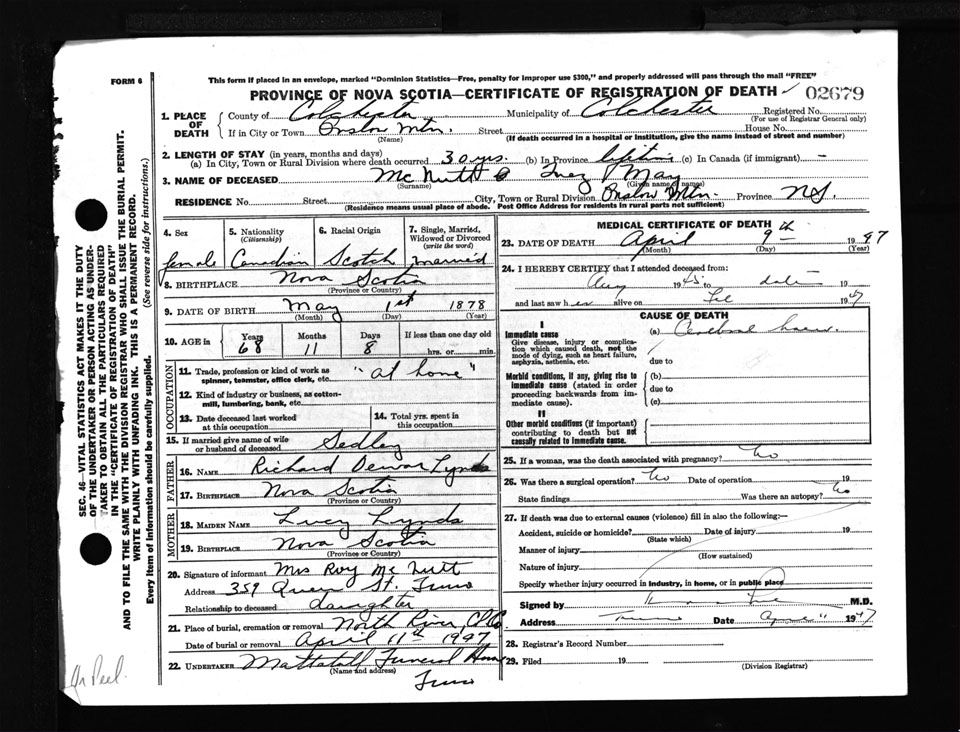 FORM 6
This form if placed in an envelope, marked "Dominion Statistics—Free, penalty for improper use $300," and properly addressed will pass through the mail "FREE"
PROVINCE OF NOVA SCOTIA—CERTIFICATE OF REGISTRATION OF DEATH 02679
1. PLACE OF DEATH County of Colchester Municipality of Colchester Registered No.
(For use of Registrar General only)
If in City or Town Onslow Mtn. Street House No.
(Name) (If death occurred in a hospital or institution, give the name instead of street and number)
2. LENGTH OF STAY (in years, months and days)
(a) In City, Town or Rural Division where death occurred 30 yrs. (b) In Province lifetime (c) In Canada (if immigrant) —
3. NAME OF DECEASED McNutt Inez May
(Surname) (Given name or names)
RESIDENCE No. Street City, Town or Rural Division Onslow Mtn. Province N.S.
(Residence means usual place of abode. Post Office Address for residents in rural parts not sufficient)
4. Sex 5. Nationality (Citizenship) 6. Racial Origin 7. Single, Married, Widowed or Divorced (write the word)
female Canadian Scotch married
8. BIRTHPLACE Nova Scotia
(Province or Country)
9. DATE OF BIRTH May 1st 1878
(Month) (Day) (Year)
10. AGE in Years Months Days If less than one day old
68 11 8 hrs. or min.
OCCUPATION
11. Trade, profession or kind of work as spinner, teamster, office clerk, etc. "at home"
12. Kind of industry or business, as cotton-mill, lumbering, bank, etc.
13. Date deceased last worked at this occupation
14. Total yrs. spent in this occupation
15. If married give name of wife or husband of deceased Sedley
FATHER
16. NAME Richard Dewar Lynds
17. BIRTHPLACE Nova Scotia
(Province or Country)
MOTHER
18. MAIDEN NAME Lucy Lynds
19. BIRTHPLACE Nova Scotia
(Province or Country)
20. Signature of informant Mrs Roy McNutt
Address 359 Queen St. Truro
Relationship to deceased daughter
21. Place of burial, cremation or removal North River, Col. Co
Date of burial or removal April 11th 1947
22. UNDERTAKER Mattatall Funeral Home
(Name and address)
Truro
MEDICAL CERTIFICATE OF DEATH
23. DATE OF DEATH April 9th 1947
(Month) (Day) (Year)
24. I HEREBY CERTIFY that I attended deceased from:
Aug 1945 to date 19
and last saw her alive on 1947
CAUSE OF DEATH
I
Immediate cause
Give disease, injury or complication which caused death, not the mode of dying, such as heart failure, asphyxia, asthenia, etc.
(a) Cerebral
due to
Morbid conditions, if any, giving rise to immediate cause (stated in order proceeding backwards from immediate cause).
(b)
due to
(c)
II
Other morbid conditions (if important) contributing to death but not causally related to immediate cause.
25. If a woman, was the death associated with pregnancy? No
26. Was there a surgical operation? No Date of operation 19
State findings Was there an autopsy? No
27. If death was due to external causes (violence) fill in also the following:—
Accident, suicide or homicide? Date of injury 19
(State which)
Manner of injury
(How sustained)
Nature of injury
Specify whether injury occurred in industry, in home, or in public place
Signed by M.D.
Address Truro Date 1947
28. Registrar's Record Number
29. Filed 19
(Division Registrar)
SEC. 46—VITAL STATISTICS ACT MAKES IT THE DUTY
OF THE UNDERTAKER OR PERSON ACTING AS UNDER-
TAKER TO OBTAIN ALL THE PARTICULARS REQUIRED
IN THE "CERTIFICATE OF REGISTRATION OF DEATH"
AND TO FILE THE SAME WITH THE DIVISION REGISTRAR WHO SHALL ISSUE THE BURIAL PERMIT.
WRITE PLAINLY WITH UNFADING INK. THIS IS A PERMANENT RECORD.
Every item of information should be carefully supplied. (See reverse side for instructions.)